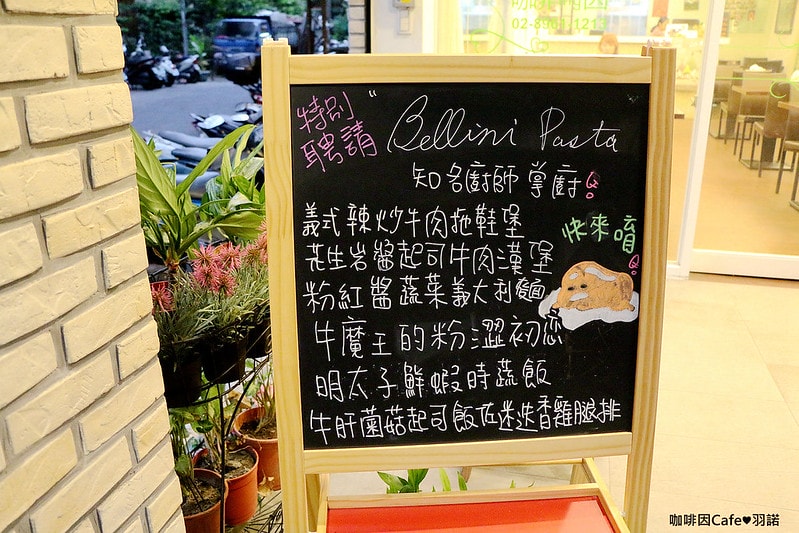 02-8961-1213
特別
聘請
"Bellini Pasta
知名廚師 掌廚!
義式辣炒牛肉拖鞋堡
快來唷!
花生岩醬起司牛肉漢堡
粉紅醬蔬菜義大利麵
牛魔王的粉澀初戀
明太子鮮蝦時蔬飯
牛肝菌菇起司飯佐迷迭香雞腿排
咖啡因Cafe♥羽諾